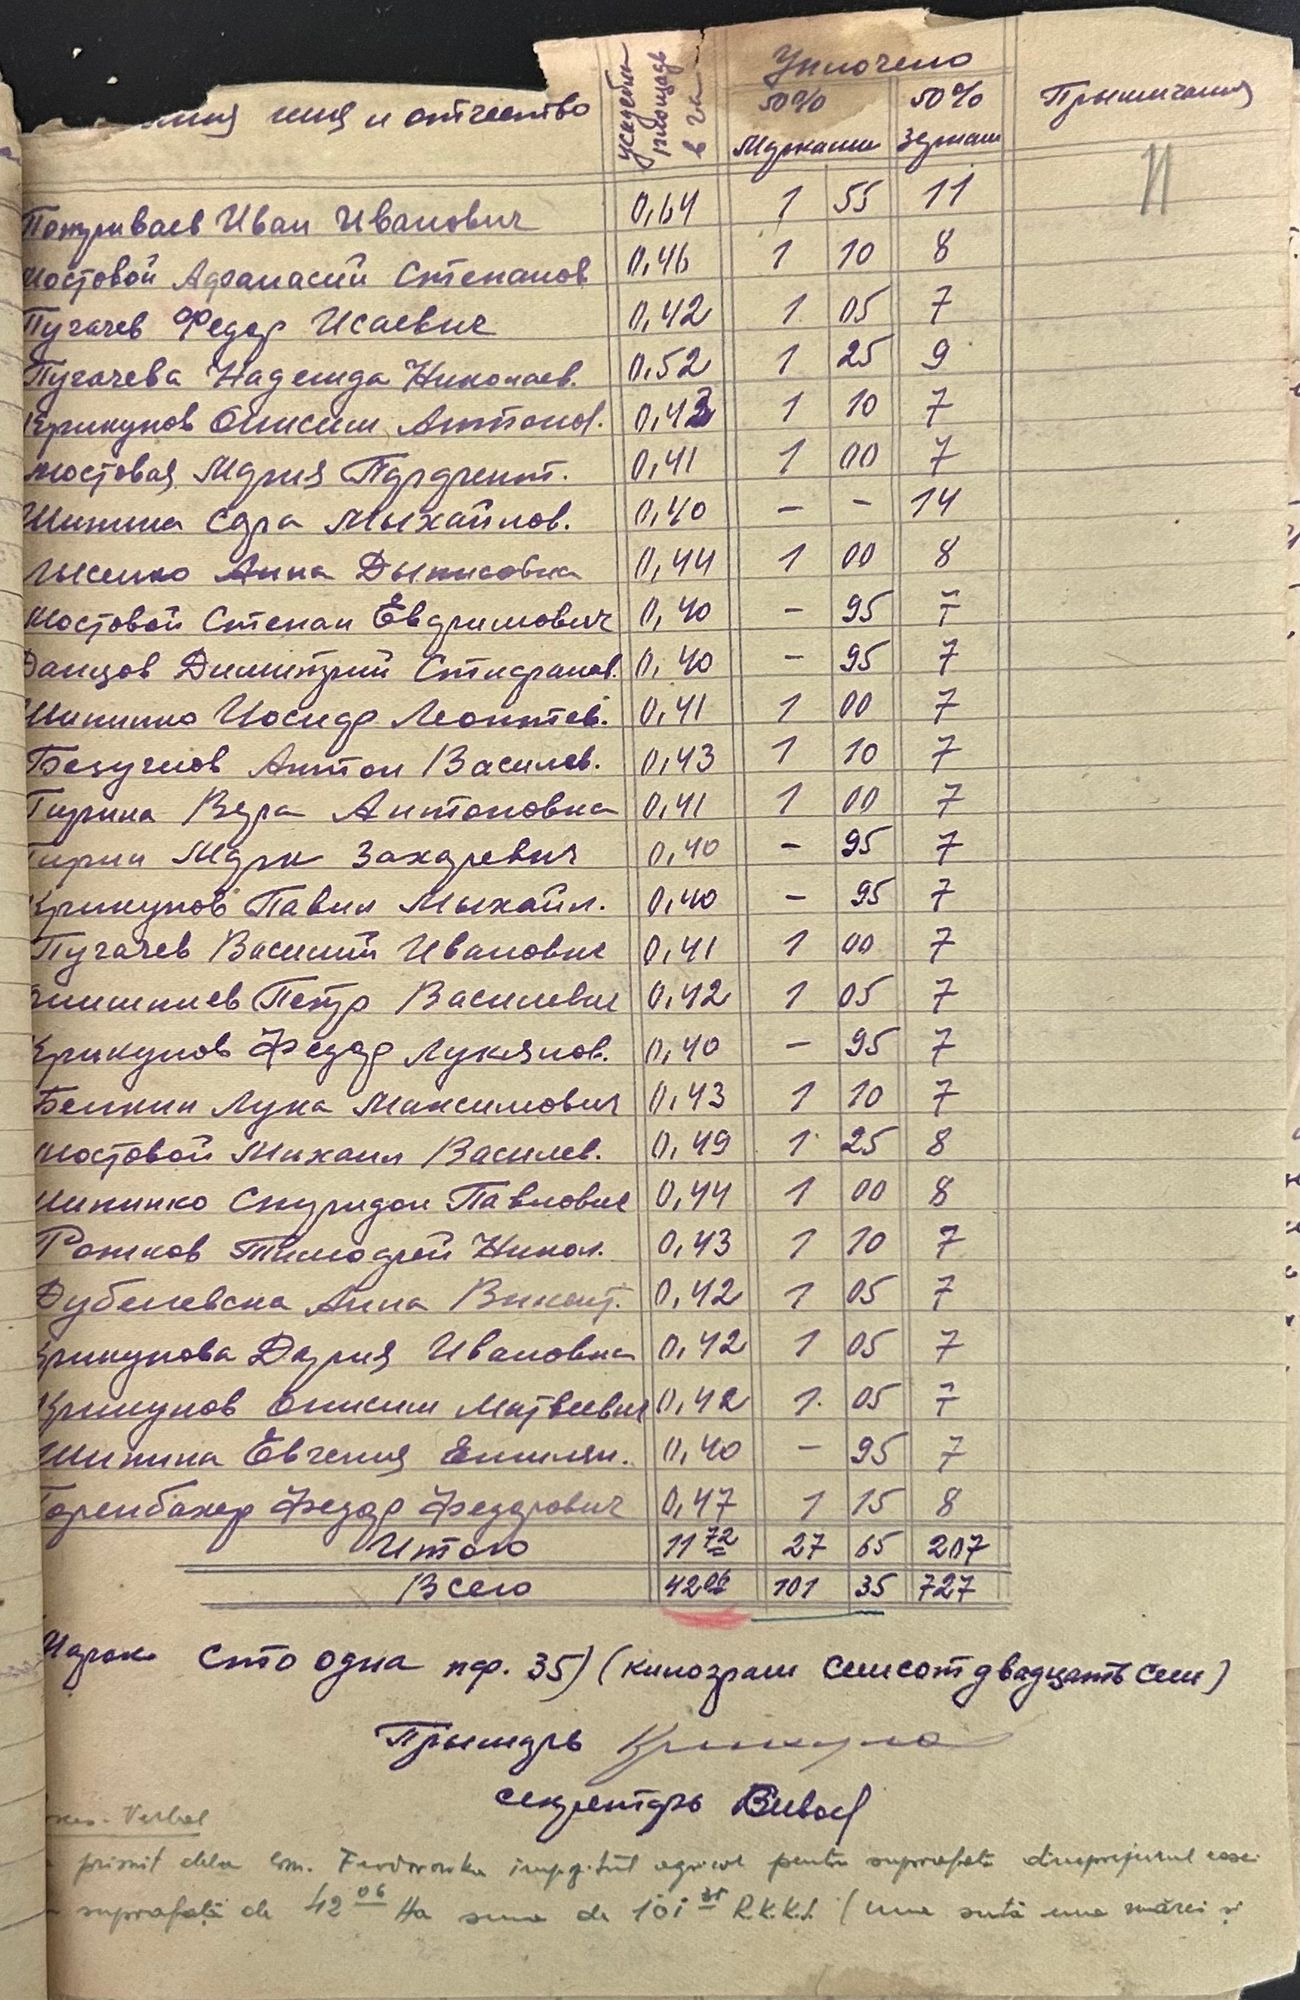 имя и отчество усадебн. площадь в га Уплочено 50% Марками 50% Зерном Прымичания
11
Пожриваев Иван Иванович 0,64 1 55 11
Мостовой Афанасий Степанов 0,46 1 10 8
Пугачев Федор Исаевич 0,42 1 05 7
Пугачева Надежда Николаев. 0,52 1 25 9
Крикунов Онисим Антонов. 0,43 1 10 7
Мостовая Мария Парфент. 0,41 1 00 7
Шипина Сара Мыхайлов. 0,40 - - 14
Лысенко Анна Дынисовна 0,44 1 00 8
Мостовой Степан Евфимович 0,40 - 95 7
Данцов Димитрий Стифанов. 0,40 - 95 7
Шипинко Иосиф Леонтев. 0,41 1 00 7
Безучнов Антон Василев. 0,43 1 10 7
Гирина Вера Антоновна 0,41 1 00 7
Гирин Марк Захаревич 0,40 - 95 7
Крикунов Павил Мыхайл. 0,40 - 95 7
Пугачев Василий Иванович 0,41 1 00 7
Петр Василевич 0,42 1 05 7
Крикунов Федор Лукянов. 0,40 - 95 7
Белкин Лука Максимович 0,43 1 10 7
Мостовой Михаил Василев. 0,49 1 25 8
Шипинко Спиридон Павлович 0,44 1 00 8
Рожков Тимофей Никол. 0,43 1 10 7
Дубелевска Анна Викент. 0,42 1 05 7
Крикунова Дария Ивановна 0,42 1 05 7
Крикунов Онисим Матвеевич 0,42 1 05 7
Шипина Евгения Емилян. 0,40 - 95 7
Федор Федорович 0,47 1 15 8
Итого 11 72 27 65 207
Всего 42 06 101 35 727
Марок сто одна пф. 35) (килограм семсот двадцать сем)
Прымарь
секретарь
Verbal
primit dela com. Feodorovka impozitul agricol pentru suprafata dimprejurul casei
suprafață de 42 06 Ha suma de 101 35 R.K.K.S. (una sută una mărci și